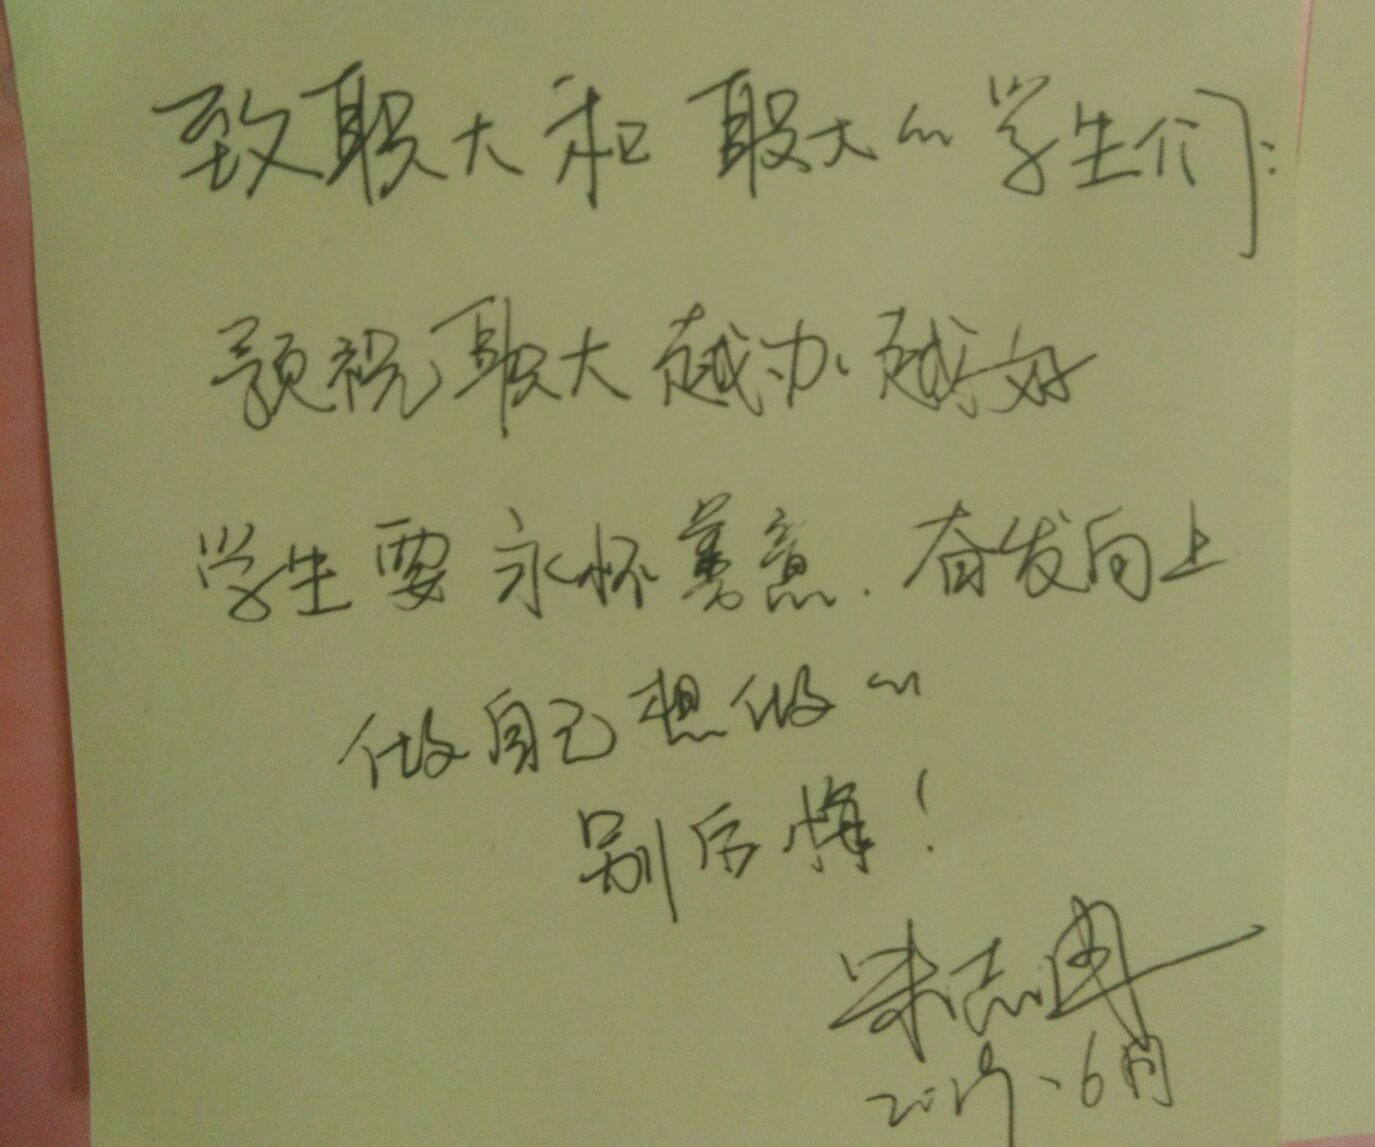 致职大和职大的学生们:
预祝职大越办越好
学生要永怀善意.奋发向上
做自己想做的
别后悔!
6月